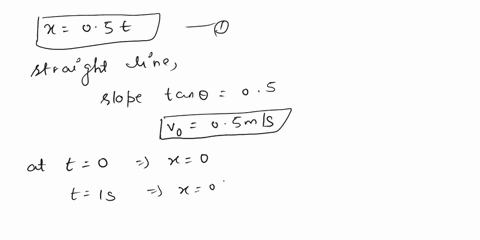 x = 0.5 t —①
straight line,
slope tanθ = 0.5
v₀ = 0.5 m/s
at t = 0 ⇒ x = 0
t = 1s ⇒ x = 0.